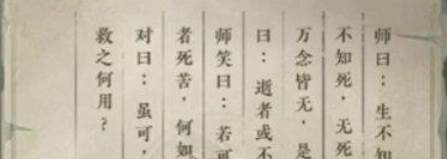 师曰：生不知
不知死，无死
万念皆无，是
曰：逝者或不
师笑曰：若可
者死苦，何如
对曰：虽可，
救之何用？